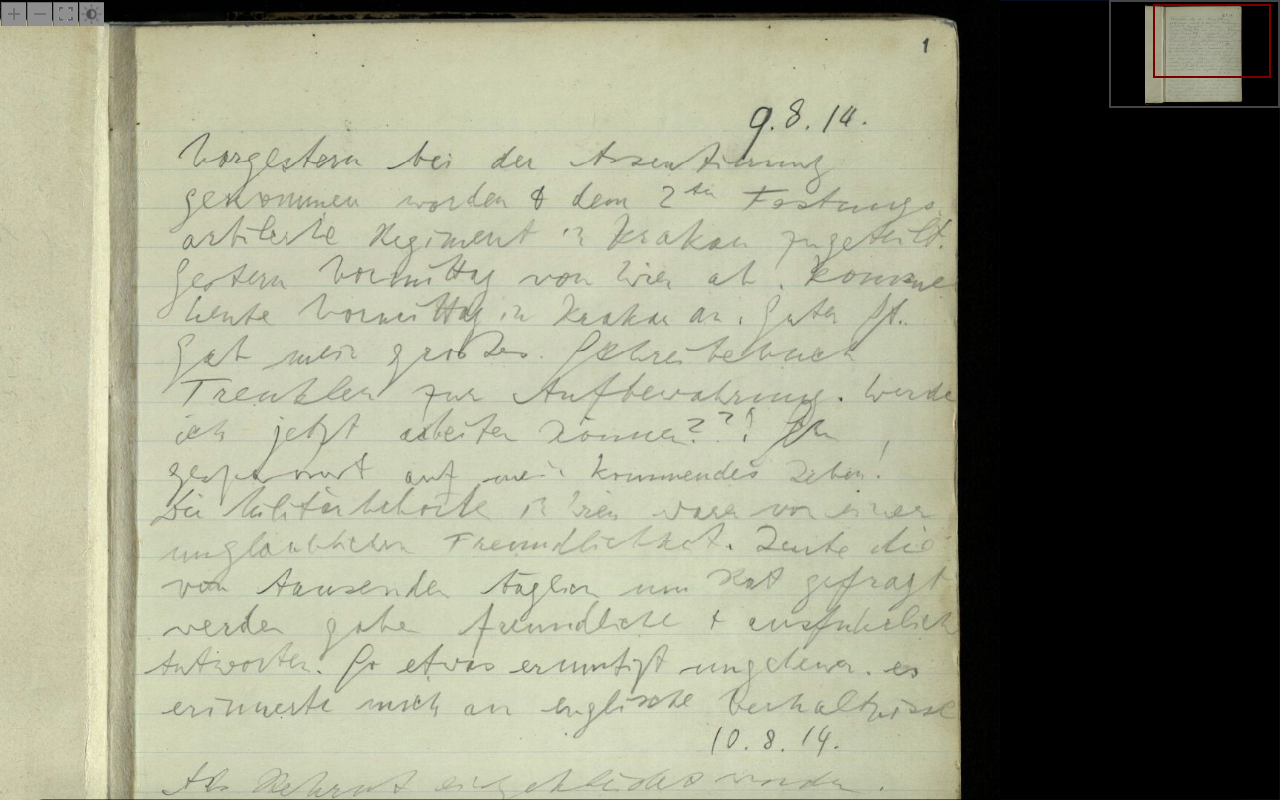 1
9.8.14.
Vorgestern bei der Assentierung
genommen worden & dem 2ten Festungs
artillerie Regiment in Krakau zugeteilt.
Gestern Vormittag von Wien ab. Komme
heute Vormittag in Krakau an. Guter St..
Gab mein großes Schreibebuch
Trenkler zur Aufbewahrung. Werde
ich jetzt arbeiten können??! Bin
gespannt auf mein kommendes Leben!
Die Militärbehörde in Wien waren von einer
unglaublichen Freundlichkeit. Leute die
von Tausenden täglich um Rat gefragt
werden gaben freundliche + ausführliche
Antworten. So etwas ermutigt ungeheuer. es
erinnerte mich an englische Verhältnisse
10.8.14.
Als Rekrut eingekleidet worden.